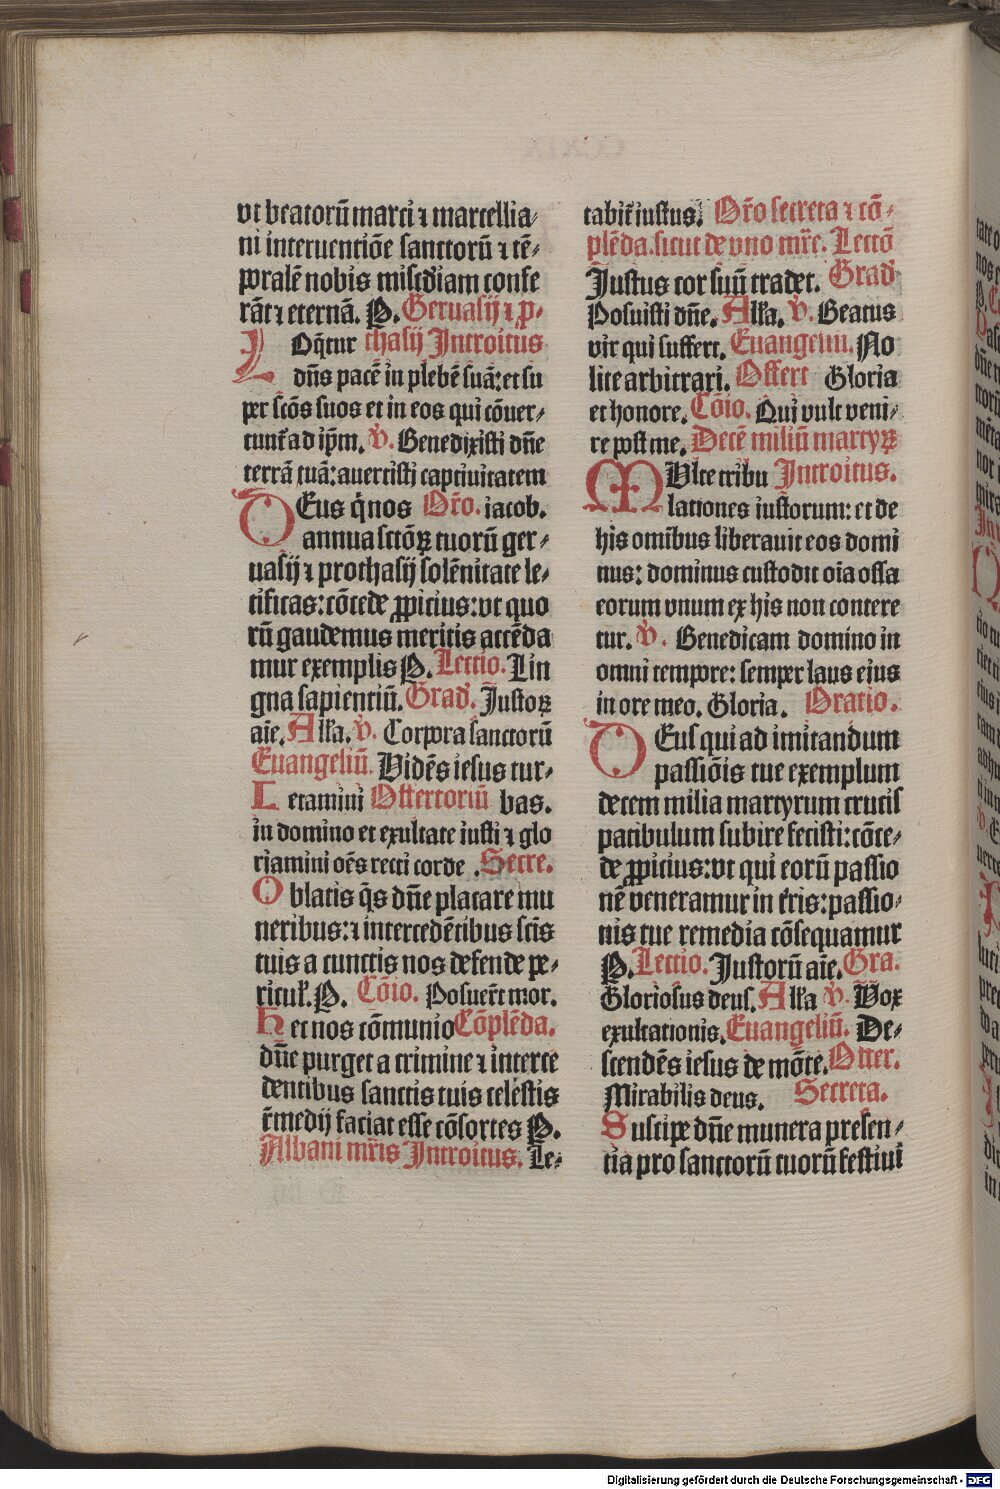 vt beatorū marci ⁊ marcellia⸗
ni interuentiōe sanctorū ⁊ tē⸗
poralē nobis miscdiam confe
rāt ⁊ eternā. P. Geruasij ⁊ p⸗
LOq̄tur thasij Introitus
dn̄s pacē in plebē suā: et su
per sc̄os suos et in eos qui cōuer⸗
tunt̄ ad ip̄m. v̄. Benedixisti dn̄e
terrā tuā: auertisti captiuitatem
DEus q̄ nos Or̄o. iacob.
annua sctōꝝ tuorū ger⸗
uasij ⁊ prothasij solēnitate le⸗
tificas: cōcede ꝓpicius: vt quo
rū gaudemus meritis accēda
mur exemplis P. Lectio. Lin
gna sapientiū. Grad̄. Justoꝝ
aīe. Alľa. v̄. Corpora sanctorū
Euangeliū. Videns iesus tur⸗
Letamini Offertoriū bas.
in domino et exultate iusti ⁊ glo
riamini oēs recti corde . Secre.
Oblatis q̄s dn̄e placare mu
neribus: ⁊ intercedētibus sctīs
tuis a cunctis nos defende pe⸗
ricuľ. P. Cōio. Posuert̄ mor.
Hec nos cōmunio Cōplēda.
dn̄e purget a crimine ⁊ interce
dentibus sanctis tuis celestis
r̄medij faciat esse cōsortes P.
Albani mr̄is Introitus. Le⸗
tabit̄ iustus. Or̄o secreta ⁊ cō⸗
plēda. sicut de vno mr̄e. Lectō
Justus cor suū tradet. Grad̄
Posuisti dn̄e. Alľa. v̄. Beatus
vir qui suffert. Euangeliū. No
lite arbitrari. Offert Gloria
et honore. Cōio. Qui vult veni⸗
re post me. Decē miliū martyꝝ
MUlte tribu Introitus.
lationes iustorum: et de
his omībus liberauit eos domi
nus: dominus custodit oīa ossa
eorum vnum ex his non contere
tur. v̄. Benedicam domino in
omni tempore: semper laus eius
in ore meo. Gloria. Oratio.
DEus qui ad imitandum
passiōis tue exemplum
decem milia martyrum crucis
patibulum subire fecisti: cōce⸗
de ꝓpicius: vt qui eorū passio
nē veneramur in tr̄is: passio⸗
nis tue remedia cōsequamur
P. Lectio. Justorū aīe. Gra.
Gloriosus deus. Alľa v̄. Vox
exultationis. Euangeliū. De⸗
scendēs iesus de mōte. Offer.
Mirabilis deus. Secreta.
Suscipe dn̄e munera presen⸗
tia pro sanctorū tuorū festiui
Digitalisierung gefördert durch die Deutsche Forschungsgemeinschaft - DFG